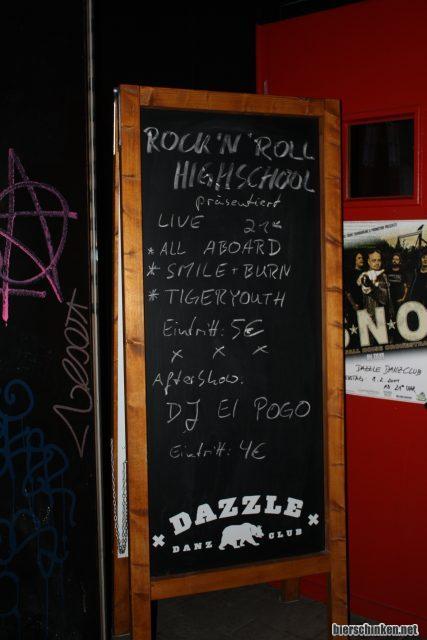 ROCK'N'ROLL
HIGHSCHOOL
präsentiert
LIVE 21
* ALL ABOARD
* SMILE + BURN
* TIGERYOUTH
Eintritt: 5€
x x x
Aftershow:
DJ El POGO
Eintritt: 4€
DAZZLE
DANZ CLUB
N★O
DAZZLE DANZCLUB
bierschinken.net